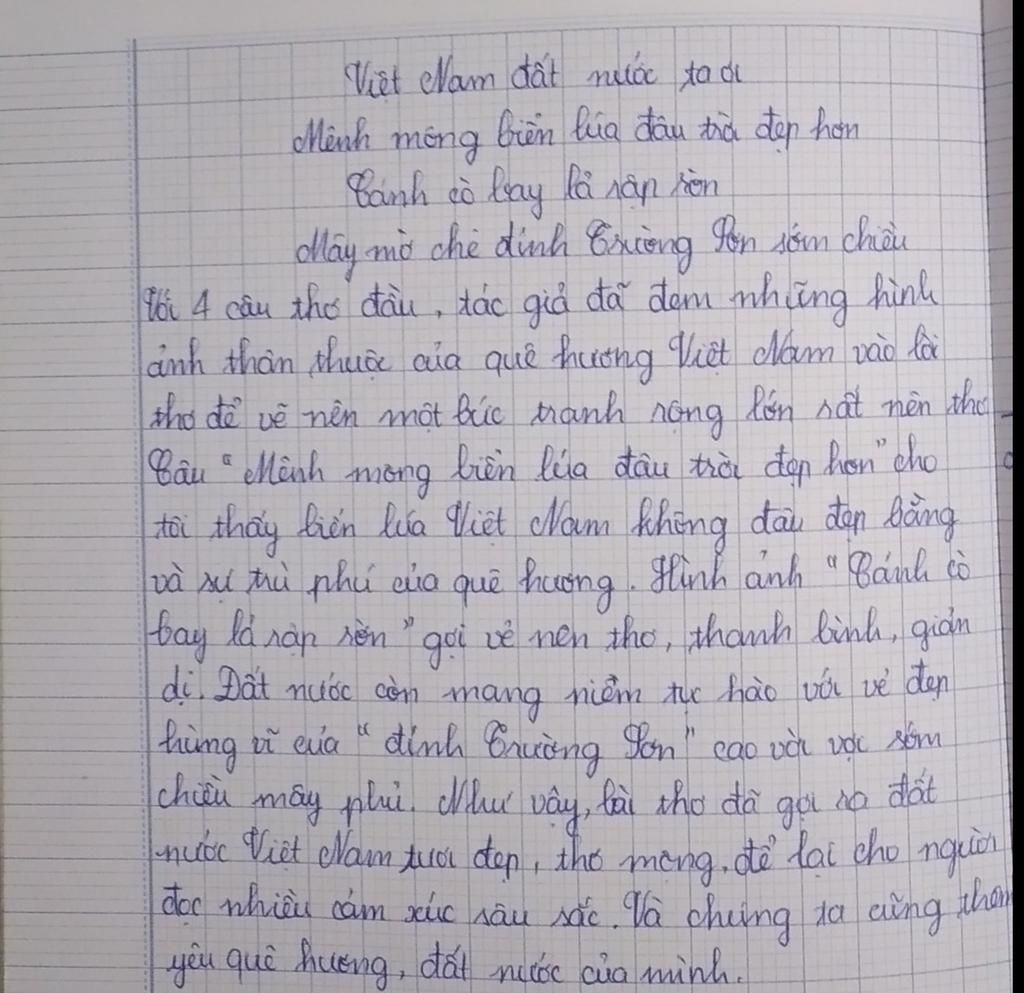 Việt Nam đất nước ta ơi
Mênh mông biển lúa đâu trời đẹp hơn
Cánh cò bay lả rập rờn
Mây mờ che đỉnh Trường Sơn sớm chiều
Với 4 câu thơ đầu, tác giả đã đem những hình
ảnh thân thuộc của quê hương Việt Nam vào lời
thơ để vẽ nên một bức tranh rộng lớn rất nên thơ
Câu "Mênh mông biển lúa đâu trời đẹp hơn" cho
tôi thấy biển lúa Việt Nam không đâu đẹp bằng
và sự trù phú của quê hương. Hình ảnh "Cánh cò
bay lả rập rờn" gợi vẻ nên thơ, thanh bình, giản
dị. Đất nước còn mang niềm tực hào với vẻ đẹp
hùng vĩ của "đỉnh Trường Sơn" cao vời vợi sớm
chiều mây phủ. Như vậy, bài thơ đã gợi ra đất
nước Việt Nam tươi đẹp, thơ mộng, để lại cho người
đọc nhiều cảm xúc sâu sắc. Và chúng ta cũng thêm
yêu quê hương, đất nước của mình.